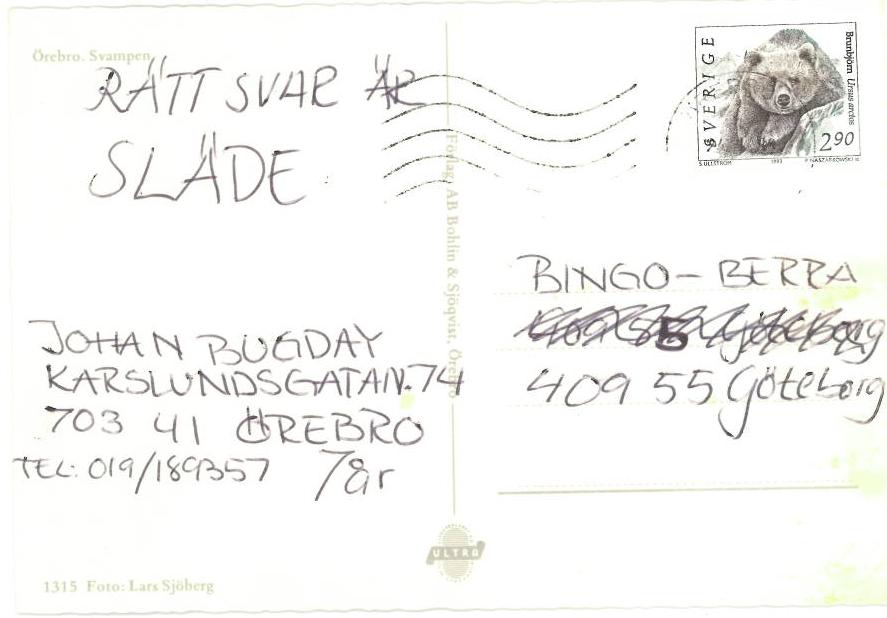 Örebro. Svampen
RÄTT SVAR ÄR
SLÄDE.
JOHAN BUGDAY
KARSLUNDSGATAN. 74
703 41 ÖREBRO
TEL: 019/189357 7år
1315 Foto: Lars Sjöberg
Förlag: AB Bohlin & Sjöqvist, Örebro
ULTRA
SVERIGE
Brunbjörn Ursus arctos
290
S. ULLSTRÖM 1993 P. NASZARKOWSKI SC
BINGO-BERRA
409 55 Göteborg
409 55 Göteborg